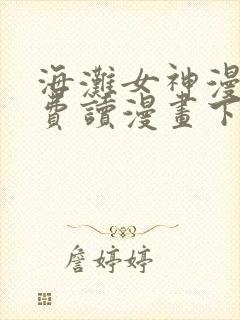 海灘女神漫
費讀漫畫下
詹婷婷